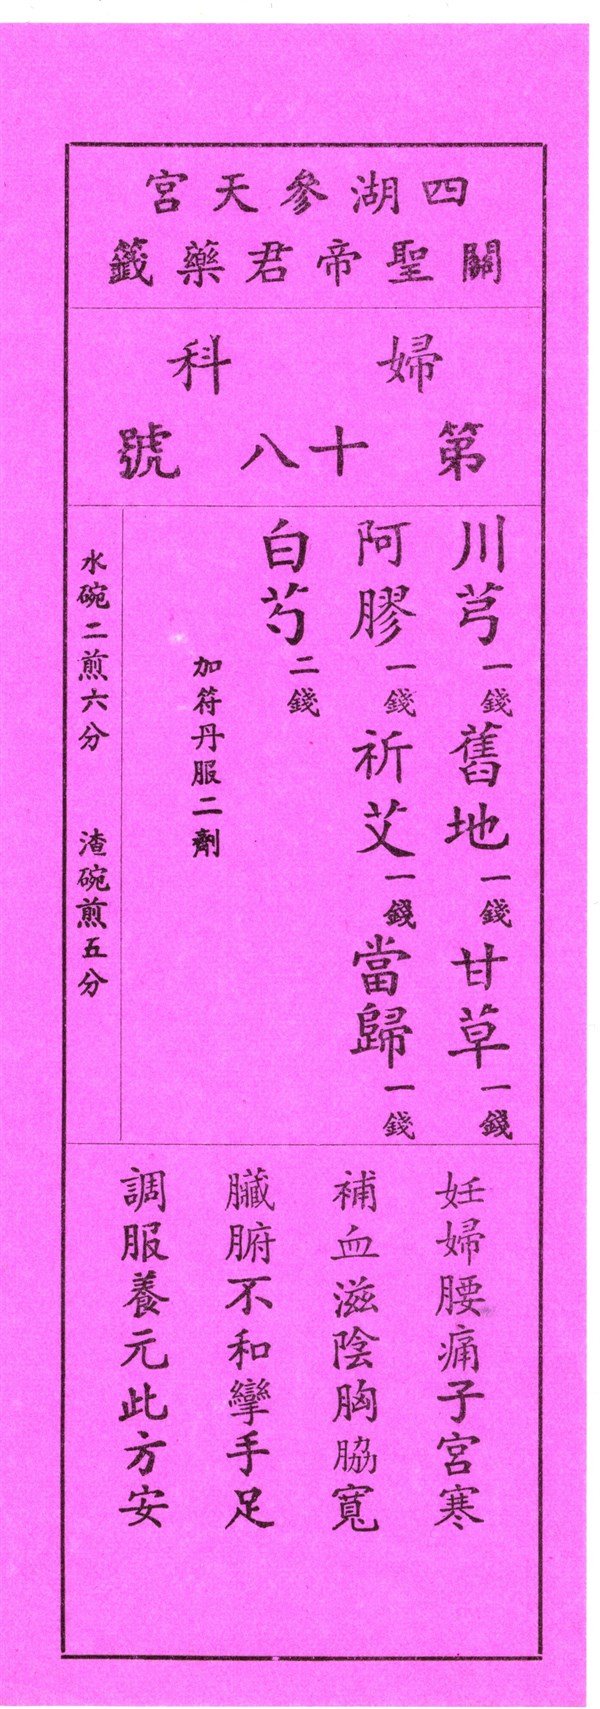 四湖參天宮
關聖帝君藥籤
婦科
第十八號
川芎一錢舊地一錢甘草一錢
阿膠一錢祈艾一錢當歸一錢
白芍二錢
加符丹服二劑
水碗二煎六分 渣碗煎五分
妊婦腰痛子宮寒
補血滋陰胸脇寬
臟腑不和攣手足
調服養元此方安